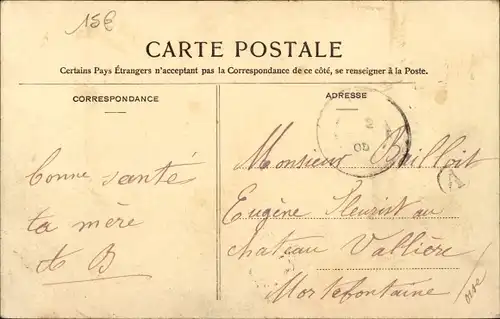 15€
CARTE POSTALE
Certains Pays Étrangers n'acceptant pas la Correspondance de ce côté, se renseigner à la Poste.
CORRESPONDANCE
ADRESSE
bonne santé
ta mère
A B
Monsieur
Eugène fleuriste au
Chateau Vallière
Mortefontaine
Oise